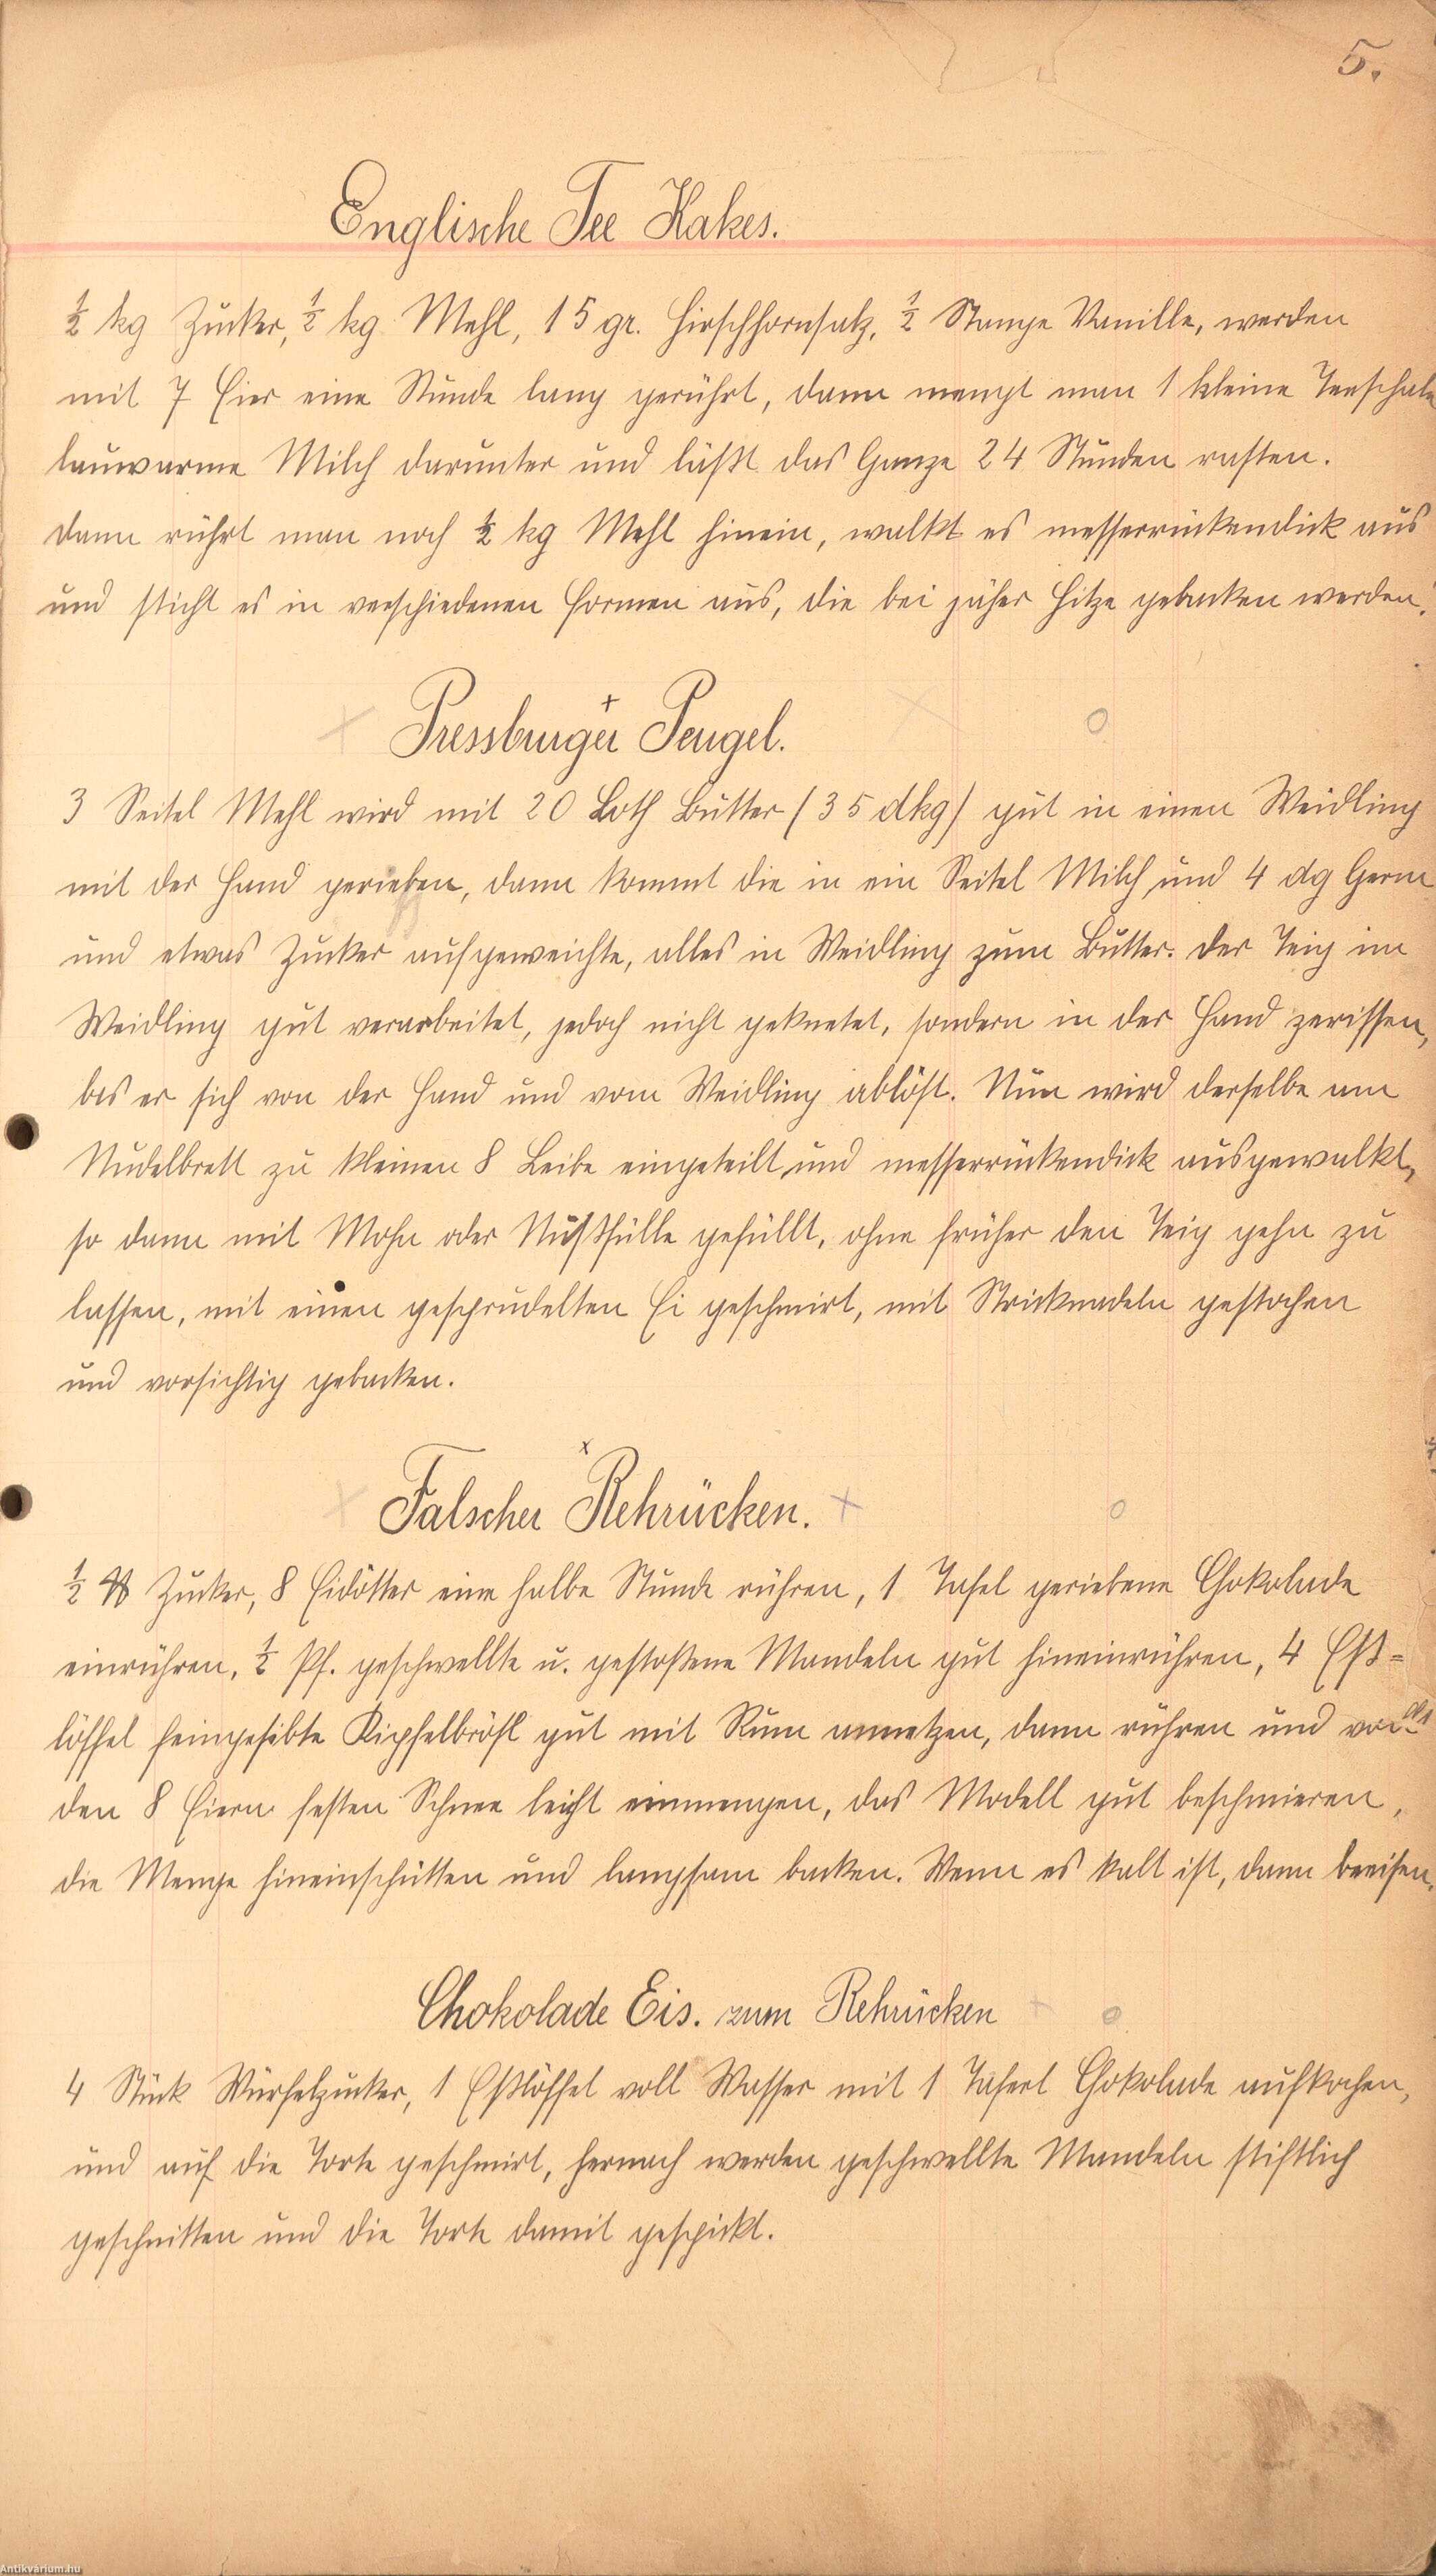 5.
Englische Tee Kakes.
½ kg Zucker, ½ kg Mehl, 15 gr. Hirschhornsalz, ½ Stange Vanille, werden
mit 7 Eier eine Stunde lang gerührt, dann mengt man 1 kleine Teeschale
lauwarme Milch darunter und läßt das Ganze 24 Stunden rasten.
Dann rührt man noch ½ kg Mehl hinein, walkt es messerrückendick aus
und sticht es in verschiedenen Formen aus, die bei jäher Hitze gebacken werden.
Pressburger Peugel.
3 Seitel Mehl wird mit 20 Loth Butter (35 dkg) gut in einen Weidling
mit der Hand gerieben, dann kommt die in ein Seitel Milch und 4 dg Germ
und etwas Zucker aufgeweichte, alles in Weidling zum Butter. Der Teig im
Weidling gut verarbeitet, jedoch nicht geknetet, sondern in der Hand zerissen,
bis er sich von der Hand und vom Weidling ablöst. Nun wird derselbe am
Nudelbrett zu kleinen 8 Leibe eingeteilt und messerrückendick ausgewalkt,
so dann mit Mohn oder Nußfülle gefüllt, ohne früher den Teig gehn zu
lassen, mit einen gesprudelten Ei geschmirt, mit Stricknadeln gestochen
und vorsichtig gebacken.
Falscher Rehrücken.
½ ℔ Zucker, 8 Eidötter eine halbe Stunde rühren, 1 Tafel geriebene Chokolade
einrühren, ½ Pf. geschwellte u. gestoßene Mandeln gut hineinrühren, 4 Eß=
löffel feingesibte Kipfelbrösl gut mit Rum annetzen, dann rühren und von
den 8 Eiern festen Schnee leicht einmengen, das Modell gut beschmieren,
die Menge hineinschütten und langsam backen. Wenn es kalt ist, dann beeisen.
Chokolade Eis. zum Rehrücken
4 Stück Würfelzucker, 1 Eßlöffel voll Wasser mit 1 Taferl Chokolade aufkochen,
und auf die Torte geschmirt, hernach werden geschwellte Mandeln stiftlich
geschnitten und die Torte damit gespickt.
Antikvárium.hu